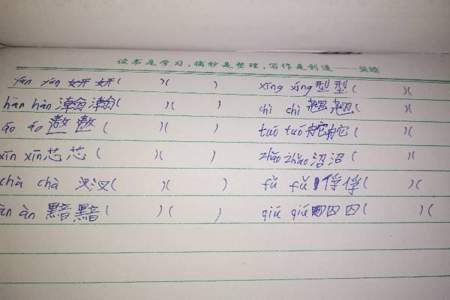 读书是学习,摘抄是整理,写作是创造——吴晗
yán yán 妍妍( )( ) xíng xíng 型型( )(
hàn hàn 瀚瀚( )( ) chì chì 翅翅( )(
áo áo 遨遨( )( ) tuó tuó ( )(
xīn xīn 芯芯( )( ) zhǎo zhǎo 沼沼( )(
chà chà 汊汊( )( ) fú fú 俘俘( )(
àn 黯黯( )( ) qiú qiú 囚囚( )(